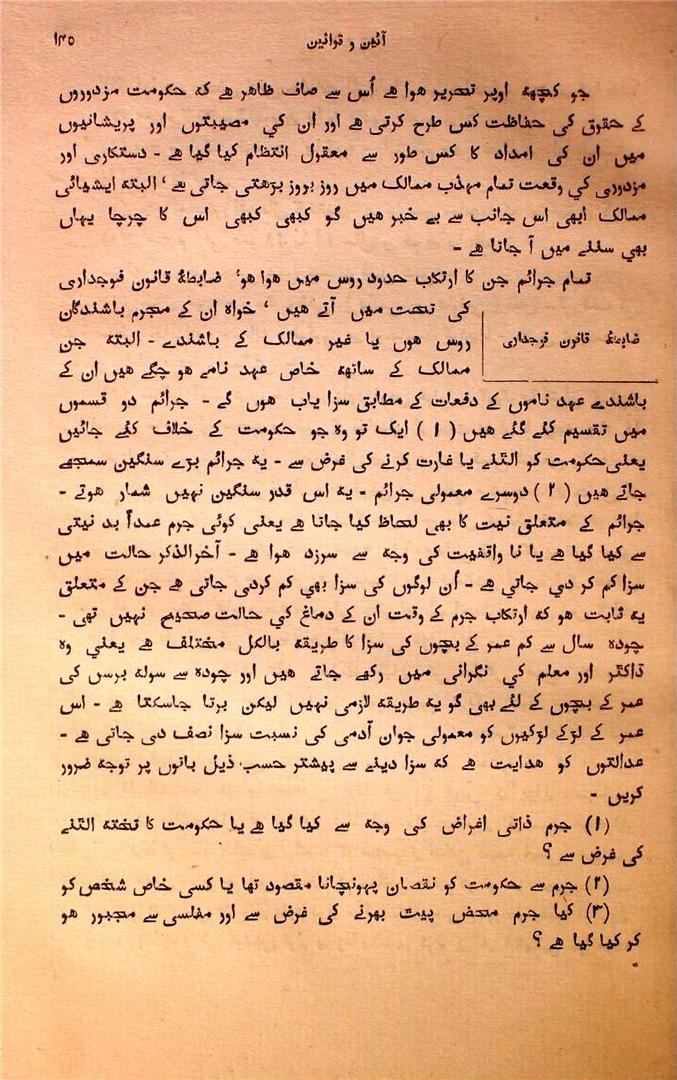 آئین و قوانین
۱۳۵
جو کچھہ اوپر تحریر ہوا ہے اُس سے صاف ظاہر ہے کہ حکومت مزدوروں
کے حقوق کی حفاظت کس طرح کرتی ہے اور ان کي مصیبتوں اور پریشانیوں
میں ان کی امداد کا کس طور سے معقول انتظام کیا گیا ہے - دستکاری اور
مزدوری کي وقعت تمام مہذب ممالک میں روز بروز بڑھتی جاتی ہے ‘ البتہ ایشیائی
ممالک ابھی اس جانب سے بے خبر ہیں گو کبھی کبھی اس کا چرچا یہاں
بھي سننے میں آ جاتا ہے -
تمام جرائم جن کا ارتکاب حدود روس میں ہوا ہو‘ ضابطۂ قانون فوجداری
کی تحت میں آتے ہیں ‘ خواہ ان کے مجرم باشندگان
ضابطۂ قانون فوجداری
روس ہوں یا غیر ممالک کے باشندے - البتہ جن
ممالک کے ساتھہ خاص عہد نامے ہو چکے ہیں ان کے
باشندے عہد ناموں کے دفعات کے مطابق سزا یاب ہوں گے - جرائم دو قسموں
میں تقسیم کئے گئے ہیں ( ۱ ) ایک تو وہ جو حکومت کے خلاف کئے جائیں
یعنی حکومت کو الٹنے یا غارت کرنے کی غرض سے - یہ جرائم بڑے سنگین سمجھے
جاتے ہیں ( ۲ ) دوسرے معمولی جرائم - یہ اس قدر سنگین نہیں شمار ہوتے -
جرائم کے متعلق نیت کا بھی لحاظ کیا جاتا ہے یعنی کوئی جرم عمداً بد نیتی
سے کیا گیا ہے یا نا واقفیت کی وجہ سے سرزد ہوا ہے - آخرالذکر حالت میں
سزا کم کر دي جاتي ہے - اُن لوگوں کی سزا بھی کم کردی جاتی ہے جن کے متعلق
یہ ثابت ہو کہ ارتکاب جرم کے وقت ان کے دماغ کي حالت صحیح نہیں تھی -
چودہ سال سے کم عمر کے بچوں کی سزا کا طریقہ بالکل مختلف ہے یعني وہ
ڈاکٹر اور معلم کي نگرانی میں رکھے جاتے ہیں اور چودہ سے سولہ برس کی
عمر کے بچوں کے لئے بھی گو یہ طریقہ لازمی نہیں لیکن برتا جاسکتا ہے - اس
عمر کے لڑکے لڑکیوں کو معمولی جوان آدمی کی نسبت سزا نصف دی جاتی ہے -
عدالتوں کو ہدایت ہے کہ سزا دینے سے پیشتر حسب ذیل باتوں پر توجہ ضرور
کریں -
(۱) جرم ذاتی اغراض کی وجہ سے کیا گیا ہے یا حکومت کا تختہ الٹنے
کی غرض سے ؟
(۲) جرم سے حکومت کو نقصان پہونچانا مقصود تھا یا کسی خاص شخص کو
(۳) کیا جرم محض پیٹ بھرنے کی غرض سے اور مفلسی سے مجبور ہو
کر کیا گیا ہے ؟